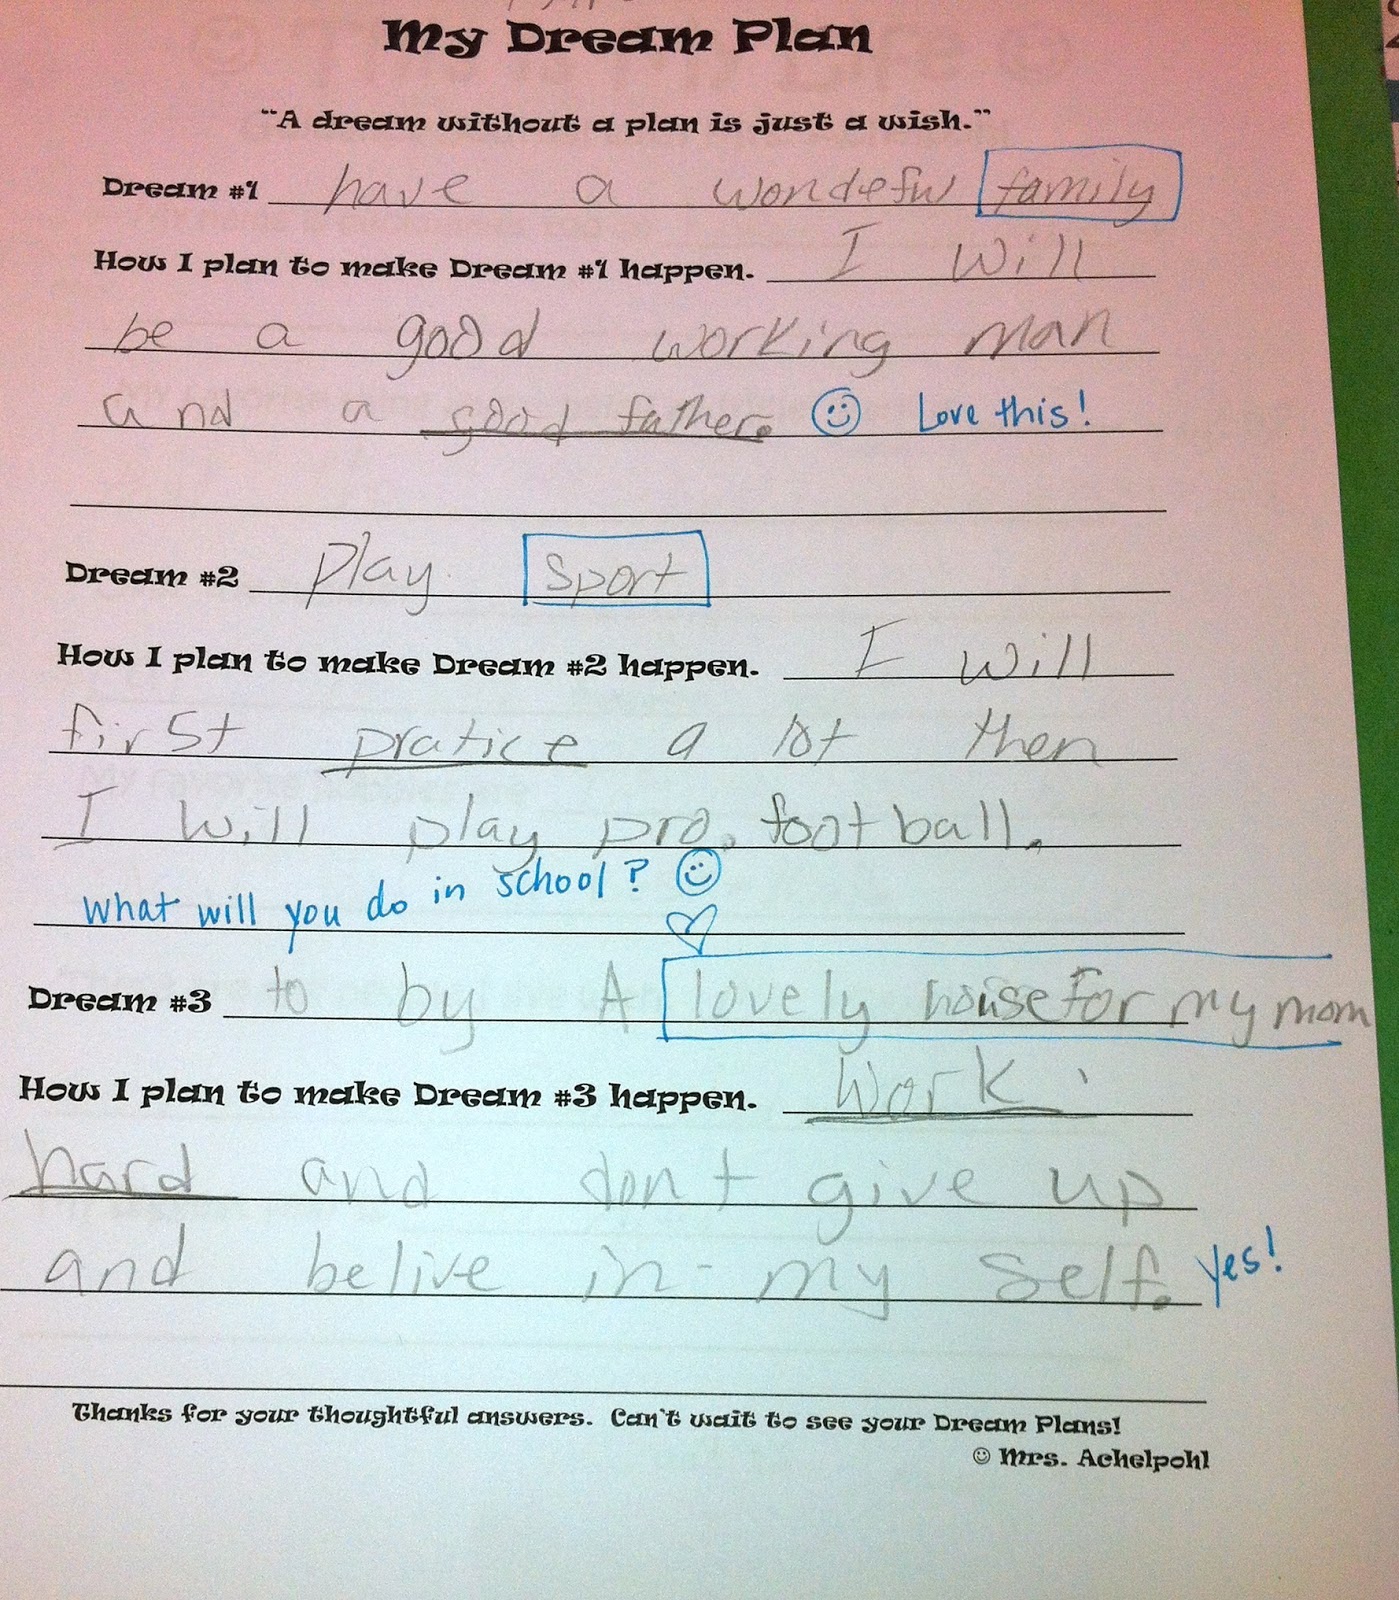 My Dream Plan
"A dream without a plan is just a wish."
Dream #1 have a wondeful family
How I plan to make Dream #1 happen. I will
be a good working man
and a good father. ☺ Love this!
Dream #2 play sport
How I plan to make Dream #2 happen. I will
first pratice a lot then
I will play pro. football.
what will you do in school? ☺
Dream #3 to by A lovely house For my mom
How I plan to make Dream #3 happen. Work
hard and don't give up
and belive in my self. Yes!
Thanks for your thoughtful answers. Can't wait to see your Dream Plans!
☺ Mrs. Achelpohl